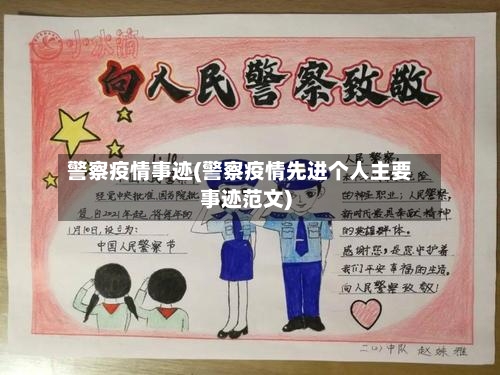 小水滴
向人民警察致敬
警察疫情事迹(警察疫情先进个人主要
事迹范文)
1.10
人民警察
险
经党中央批准、国务院批
的神圣职业;人民警察,
复,自2021年起,将每年的
新时代最具奉献精神
1月10日,设立为:
的英雄群体。
中国人民警察节
感谢您,是您守护着
我们平安幸福的生活,
向人民警察致敬!
二(2)中队 赵姝雅